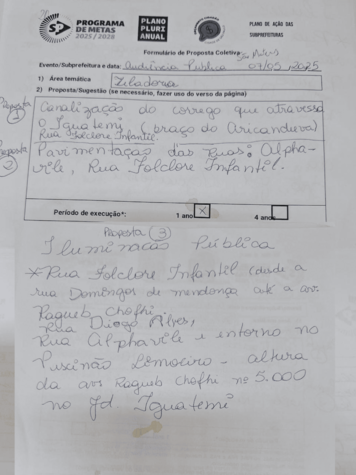 PROGRAMA
DE METAS
2025 / 2028
PLANO
PLURI
ANUAL
PLANO DE AÇÃO DAS
SUBPREFEITURAS
Formulário de Proposta Coletiva São Mateus
Evento/Subprefeitura e data: Audiência Pública 07/05/2025
1) Área temática Zeladoria
2) Proposta/Sugestão (se necessário, fazer uso do verso da página)
Proposta 1 Canalização do corrego que atravessa
o Iguatemi (braço do Aricanduva)
Rua Folclore Infantil.
Proposta 2 Pavimentação das Ruas: Alpha-
vile, Rua Folclore Infantil.
Período de execução*: 1 ano X 4 anos
Proposta (3)
Iluminação Pública
* Rua Folclore Infantil (dade a
rua Domingos de mendonça até a av.
Ragueb Chofhi
Rua Diogo Alves,
Rua Alphavile e entorno no
Pisinão Limoeiro - altura
da avs Ragueb Chofhi nº 5.000
no Jd. Iguatemi